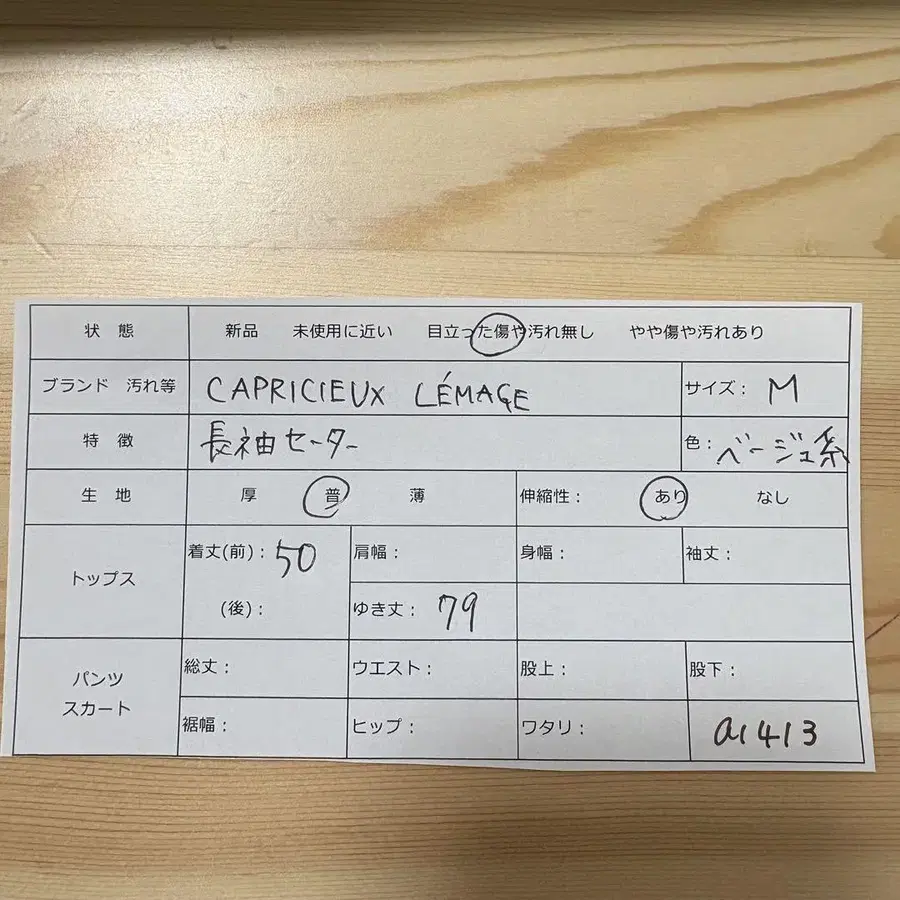 状 態 新品 未使用に近い 目立った傷や汚れ無し やや傷や汚れあり
ブランド 汚れ等 CAPRICIEUX LÉMAGE サイズ: M
特 徴 長袖セーター 色: ベージュ系
生 地 厚 普 薄 伸縮性: あり なし
トップス 着丈(前): 50 肩幅: 身幅: 袖丈:
(後): ゆき丈: 79
パンツ スカート 総丈: ウエスト: 股上: 股下:
裾幅: ヒップ: ワタリ: a1413